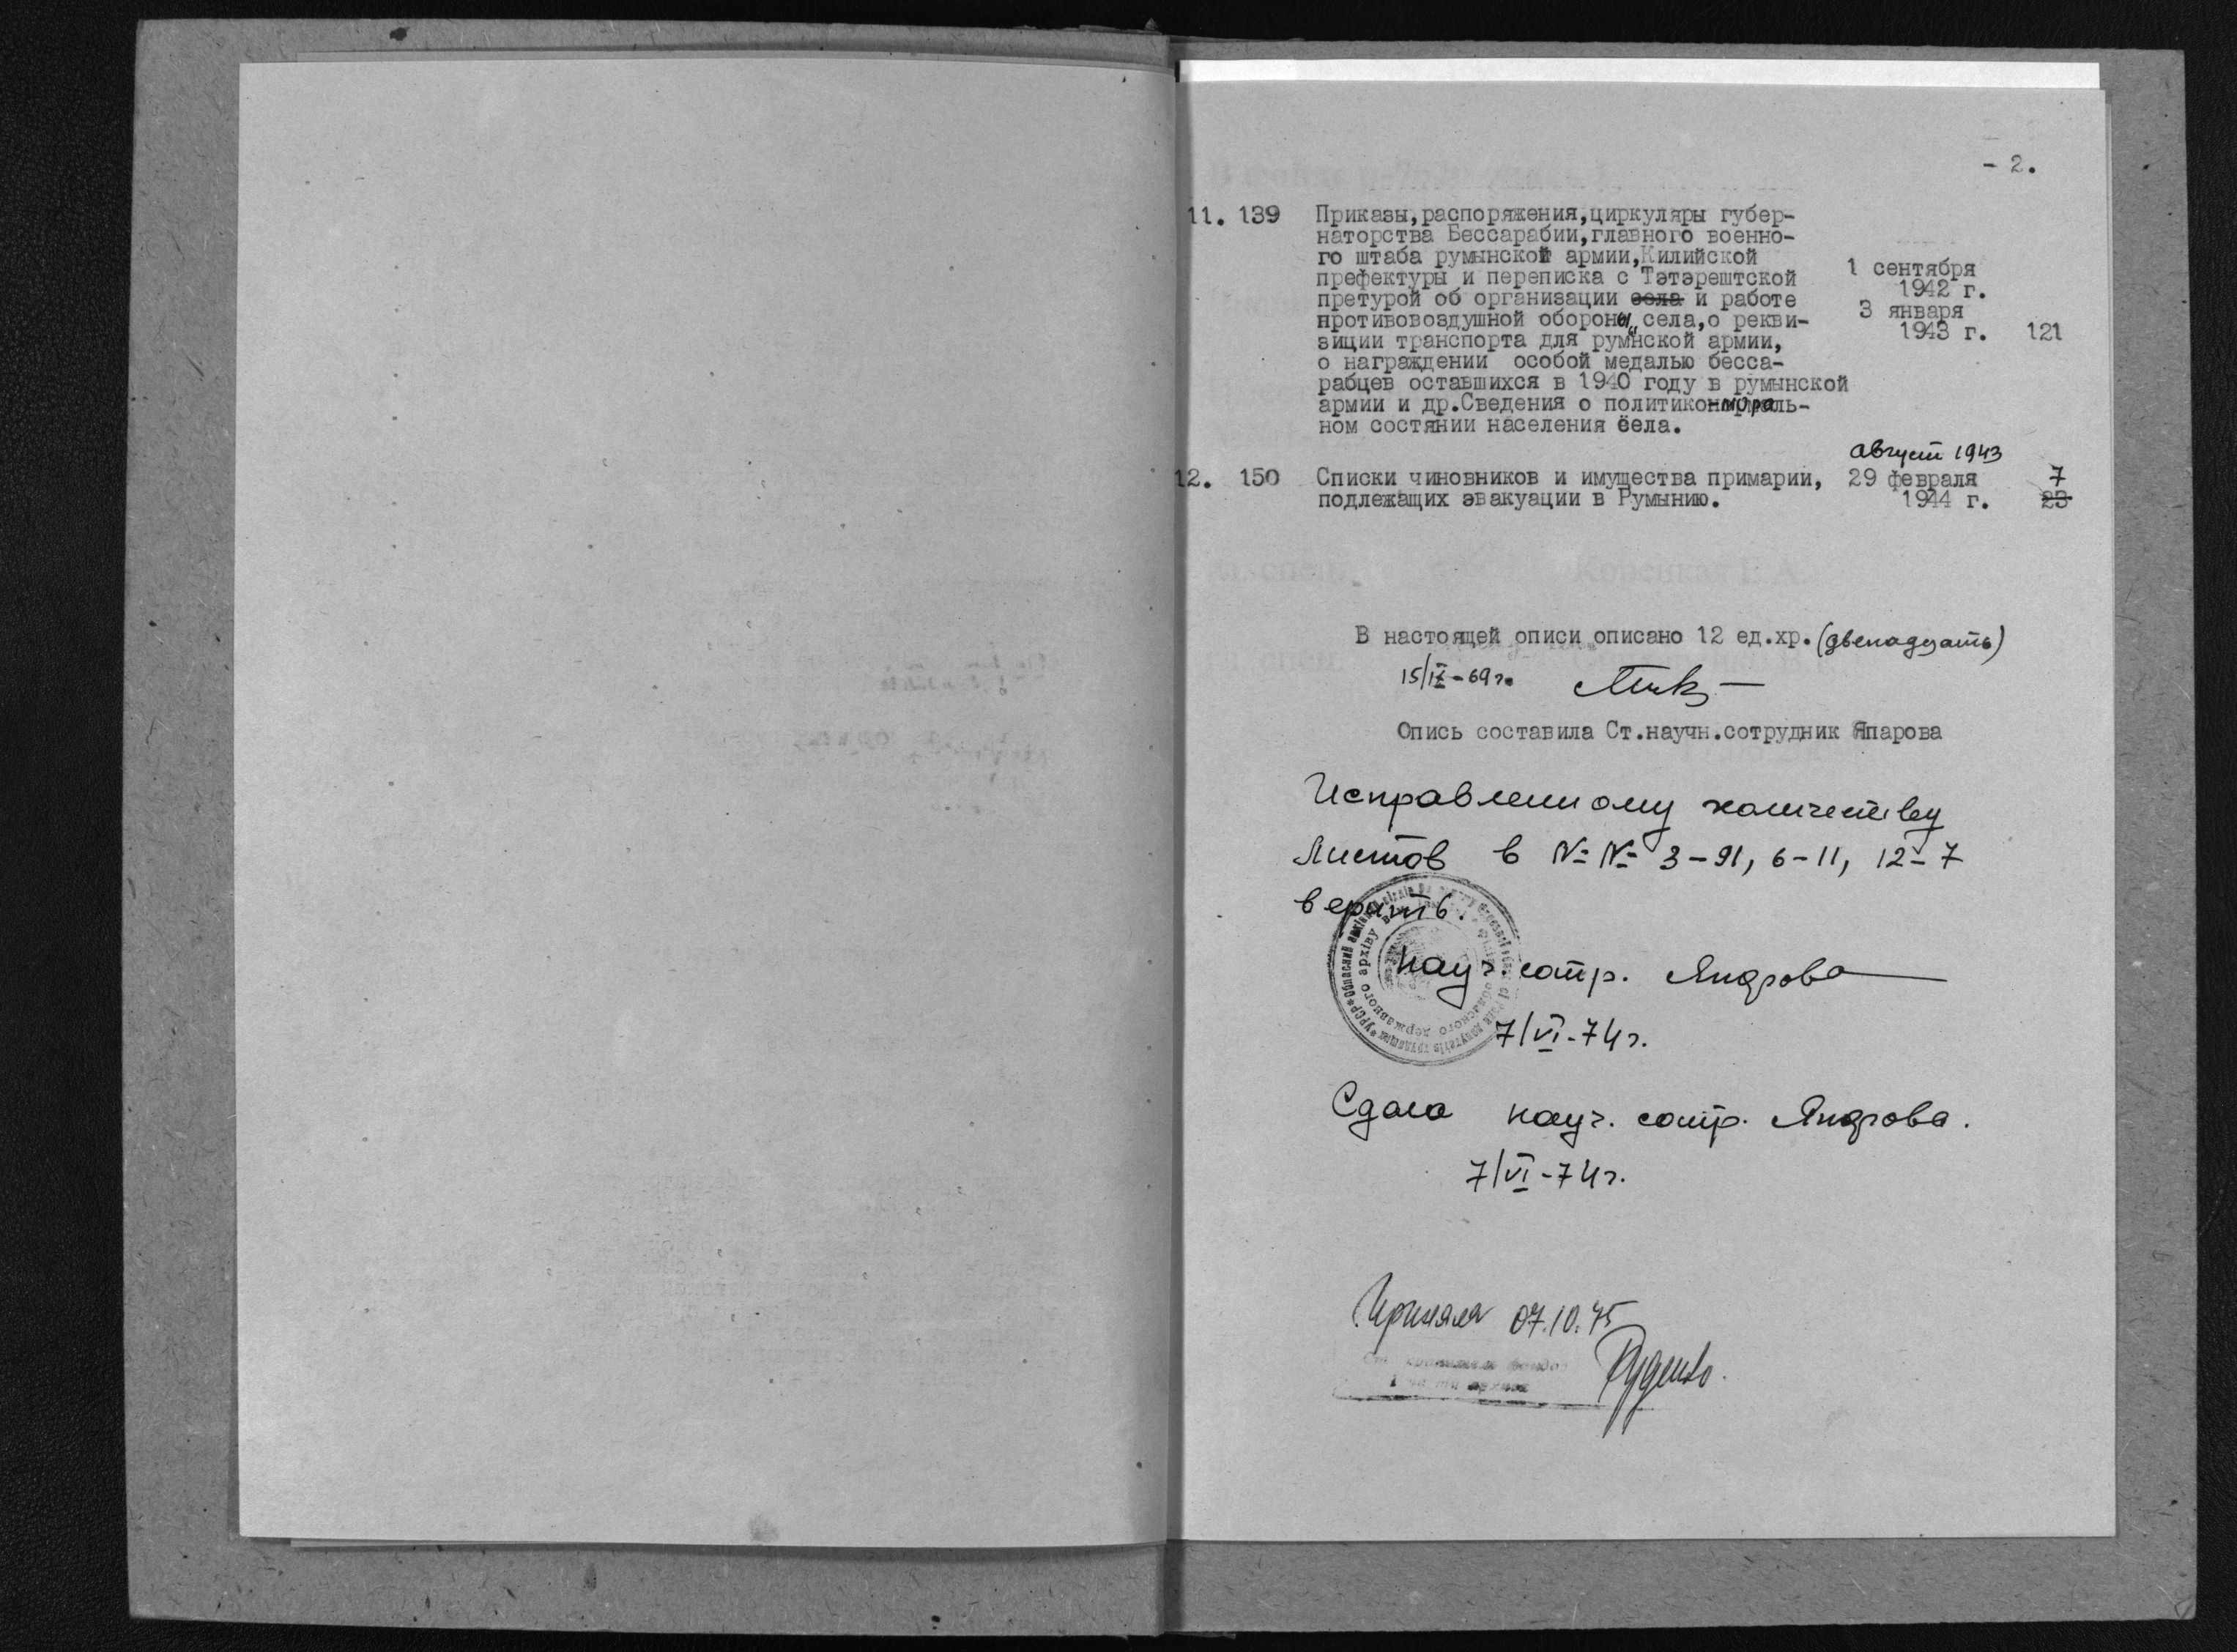 - 2.
11. 139 Приказы,распоряжения,циркуляры губер-
наторства Бессарабии,главного военно-
го штаба румынской армии,Килийской
префектуры и переписка с Тэтэрештской 1 сентября
претурой об организации села и работе 1942 г.
противовоздушной обороны села,о рекви- 3 января
зиции транспорта для румнской армии, 1943 г. 121
о награждении особой медалью бесса-
рабцев оставшихся в 1940 году в румынской
армии и др.Сведения о политико-мораль-
ном состянии населения села.
август 1943
12. 150 Списки чиновников и имущества примарии, 29 февраля 7
подлежащих эвакуации в Румынию. 1944 г. 23
В настоящей описи описано 12 ед.хр. (двенадцать)
15/IX-69г.
Опись составила Ст.научн.сотрудник Япарова
Исправленному количеству
листов в №№ 3-91, 6-11, 12-7
верить.
науч. сотр.
7/VI-74г.
Сдала науч. сотр.
7/VI-74г.
Приняла 07.10.75
Руденко.